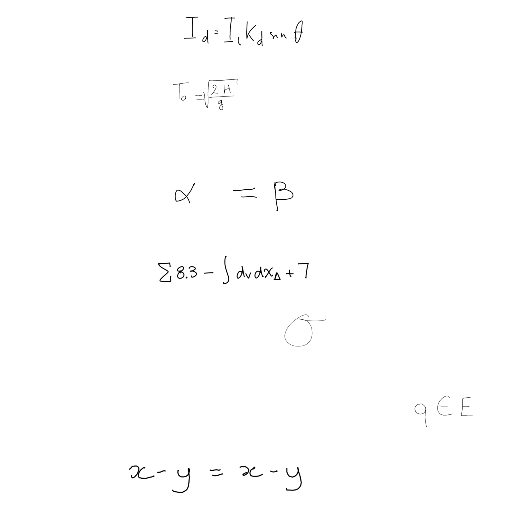 I_d = I_i K_d sin θ
T_0 = √(2H/g)
α = β
∑ 8.3 − ∫ dv dx_Δ + 7
σ
q ∈ E
x − y = x − y